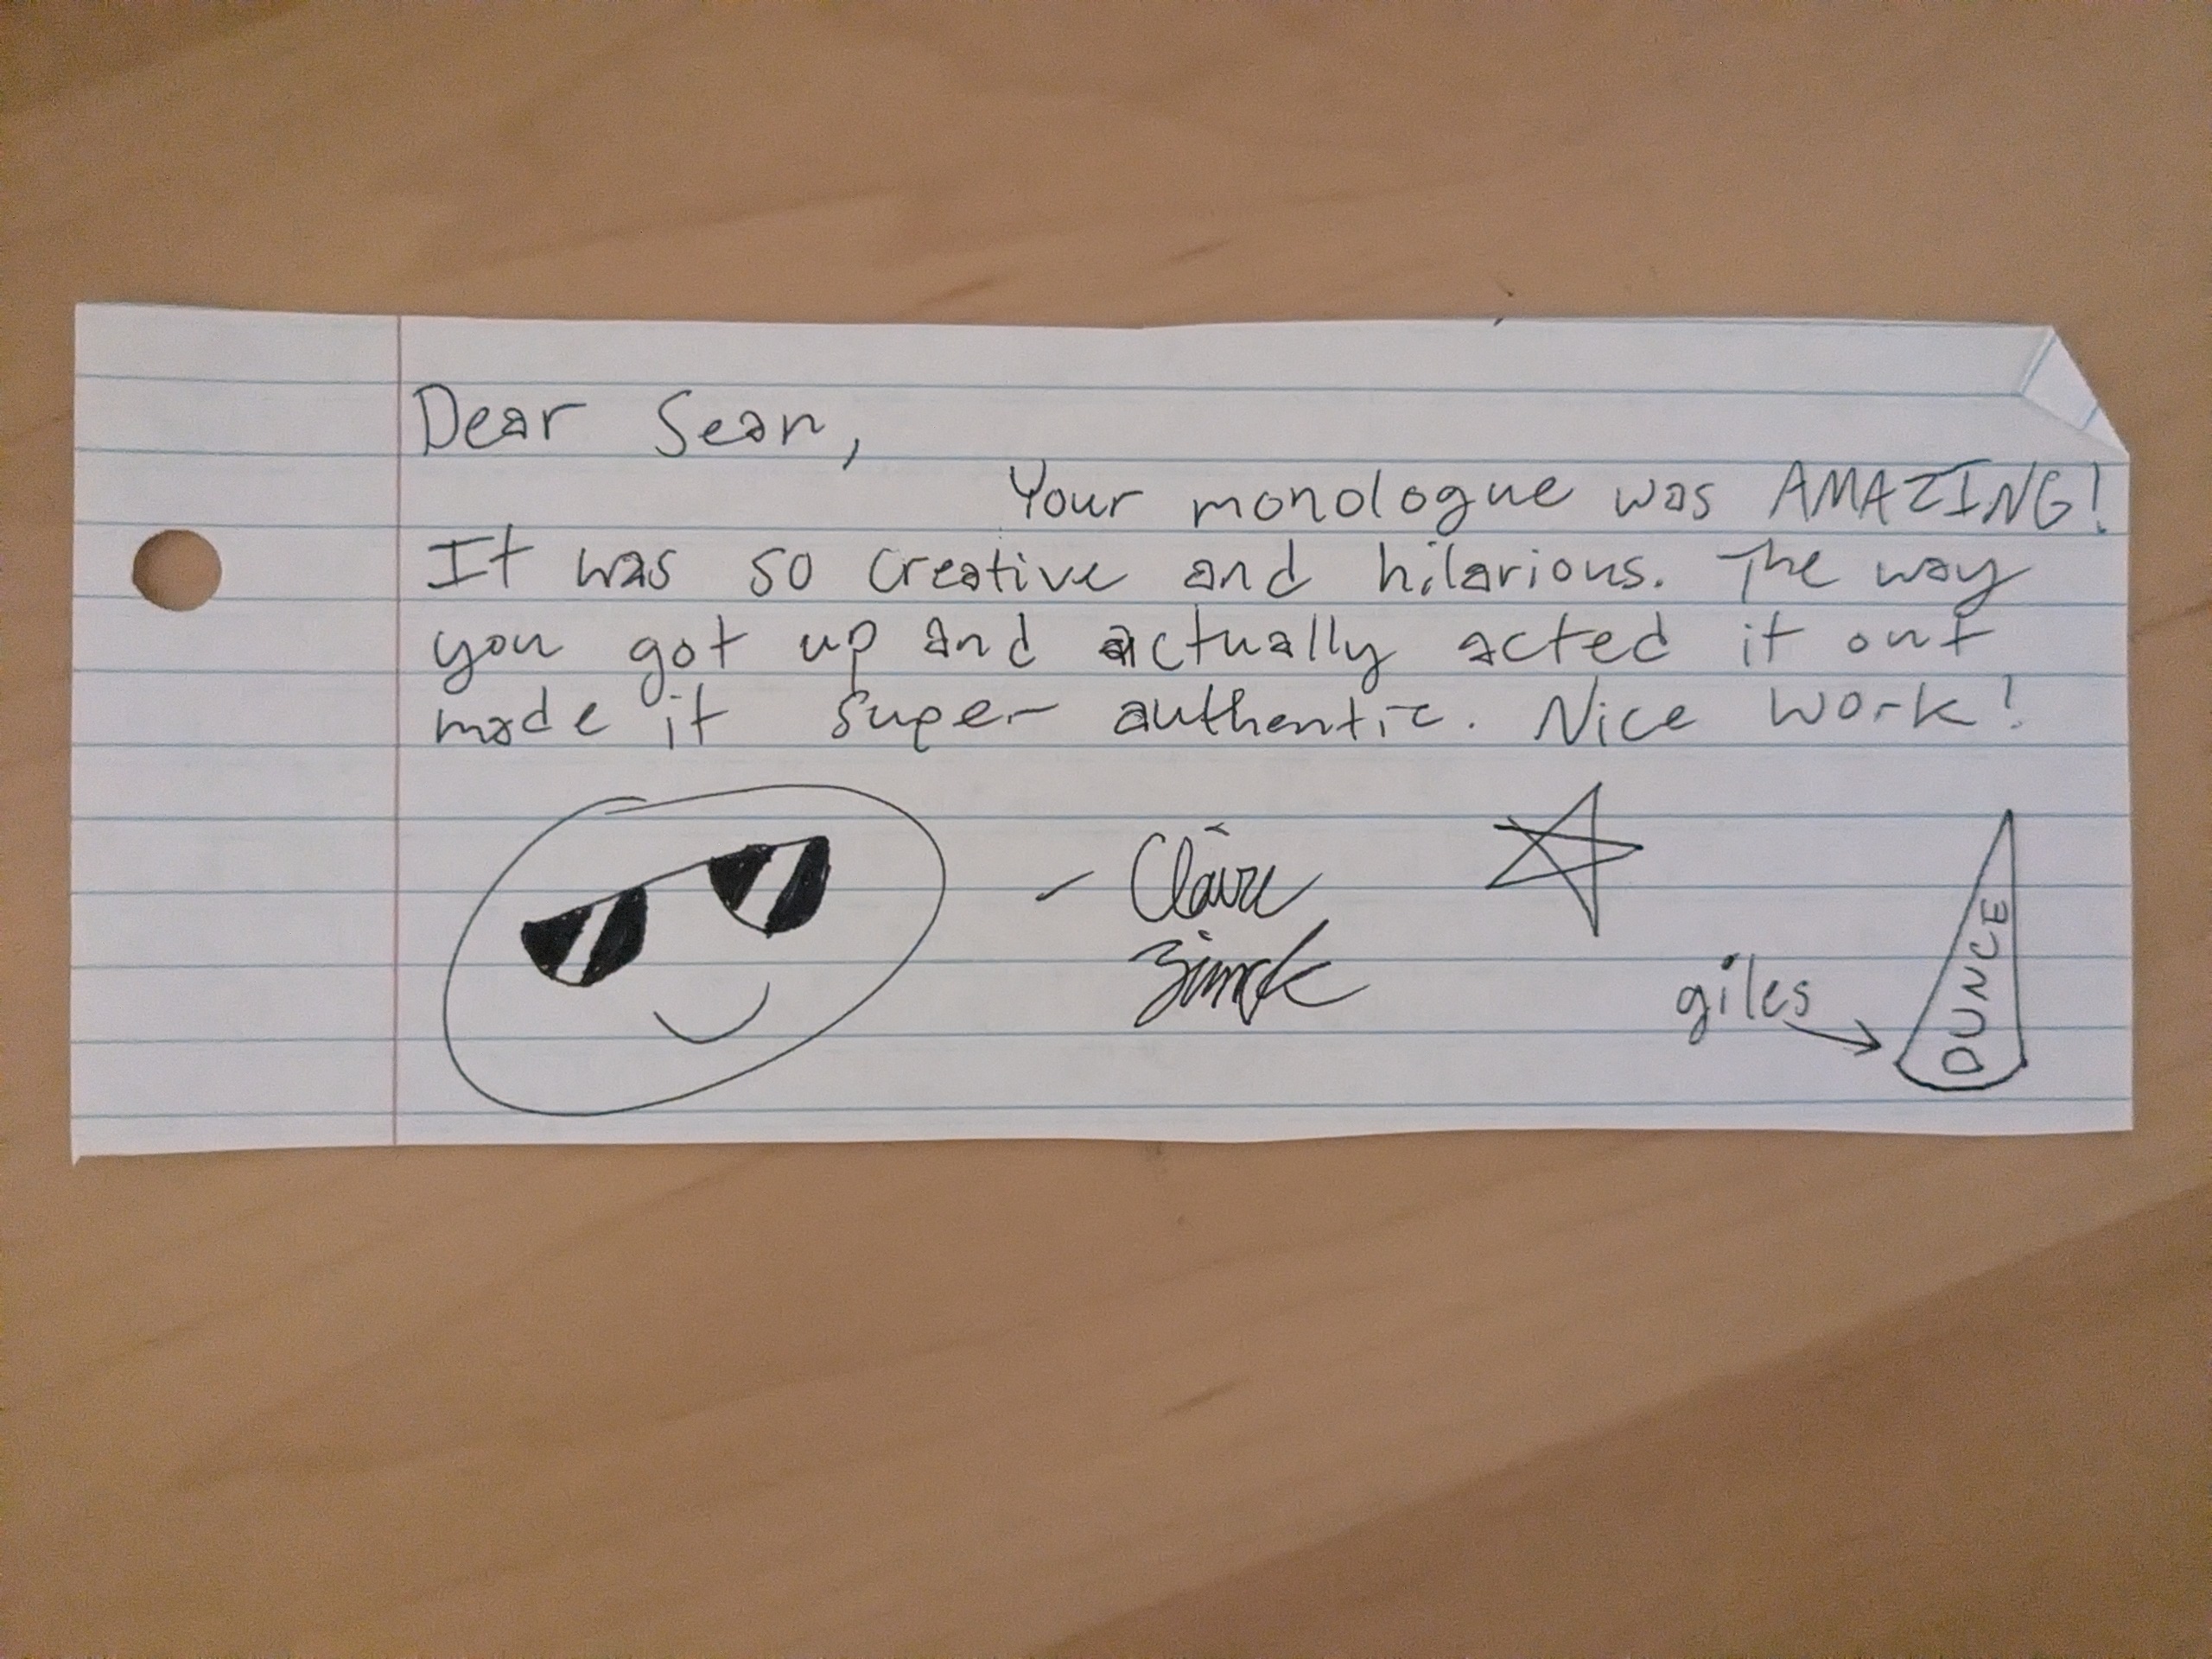 Dear Sean,
Your monologue was AMAZING!
It was so creative and hilarious. The way
you got up and actually acted it out
made it super authentic. Nice work!
- Claire
giles
DUNCE